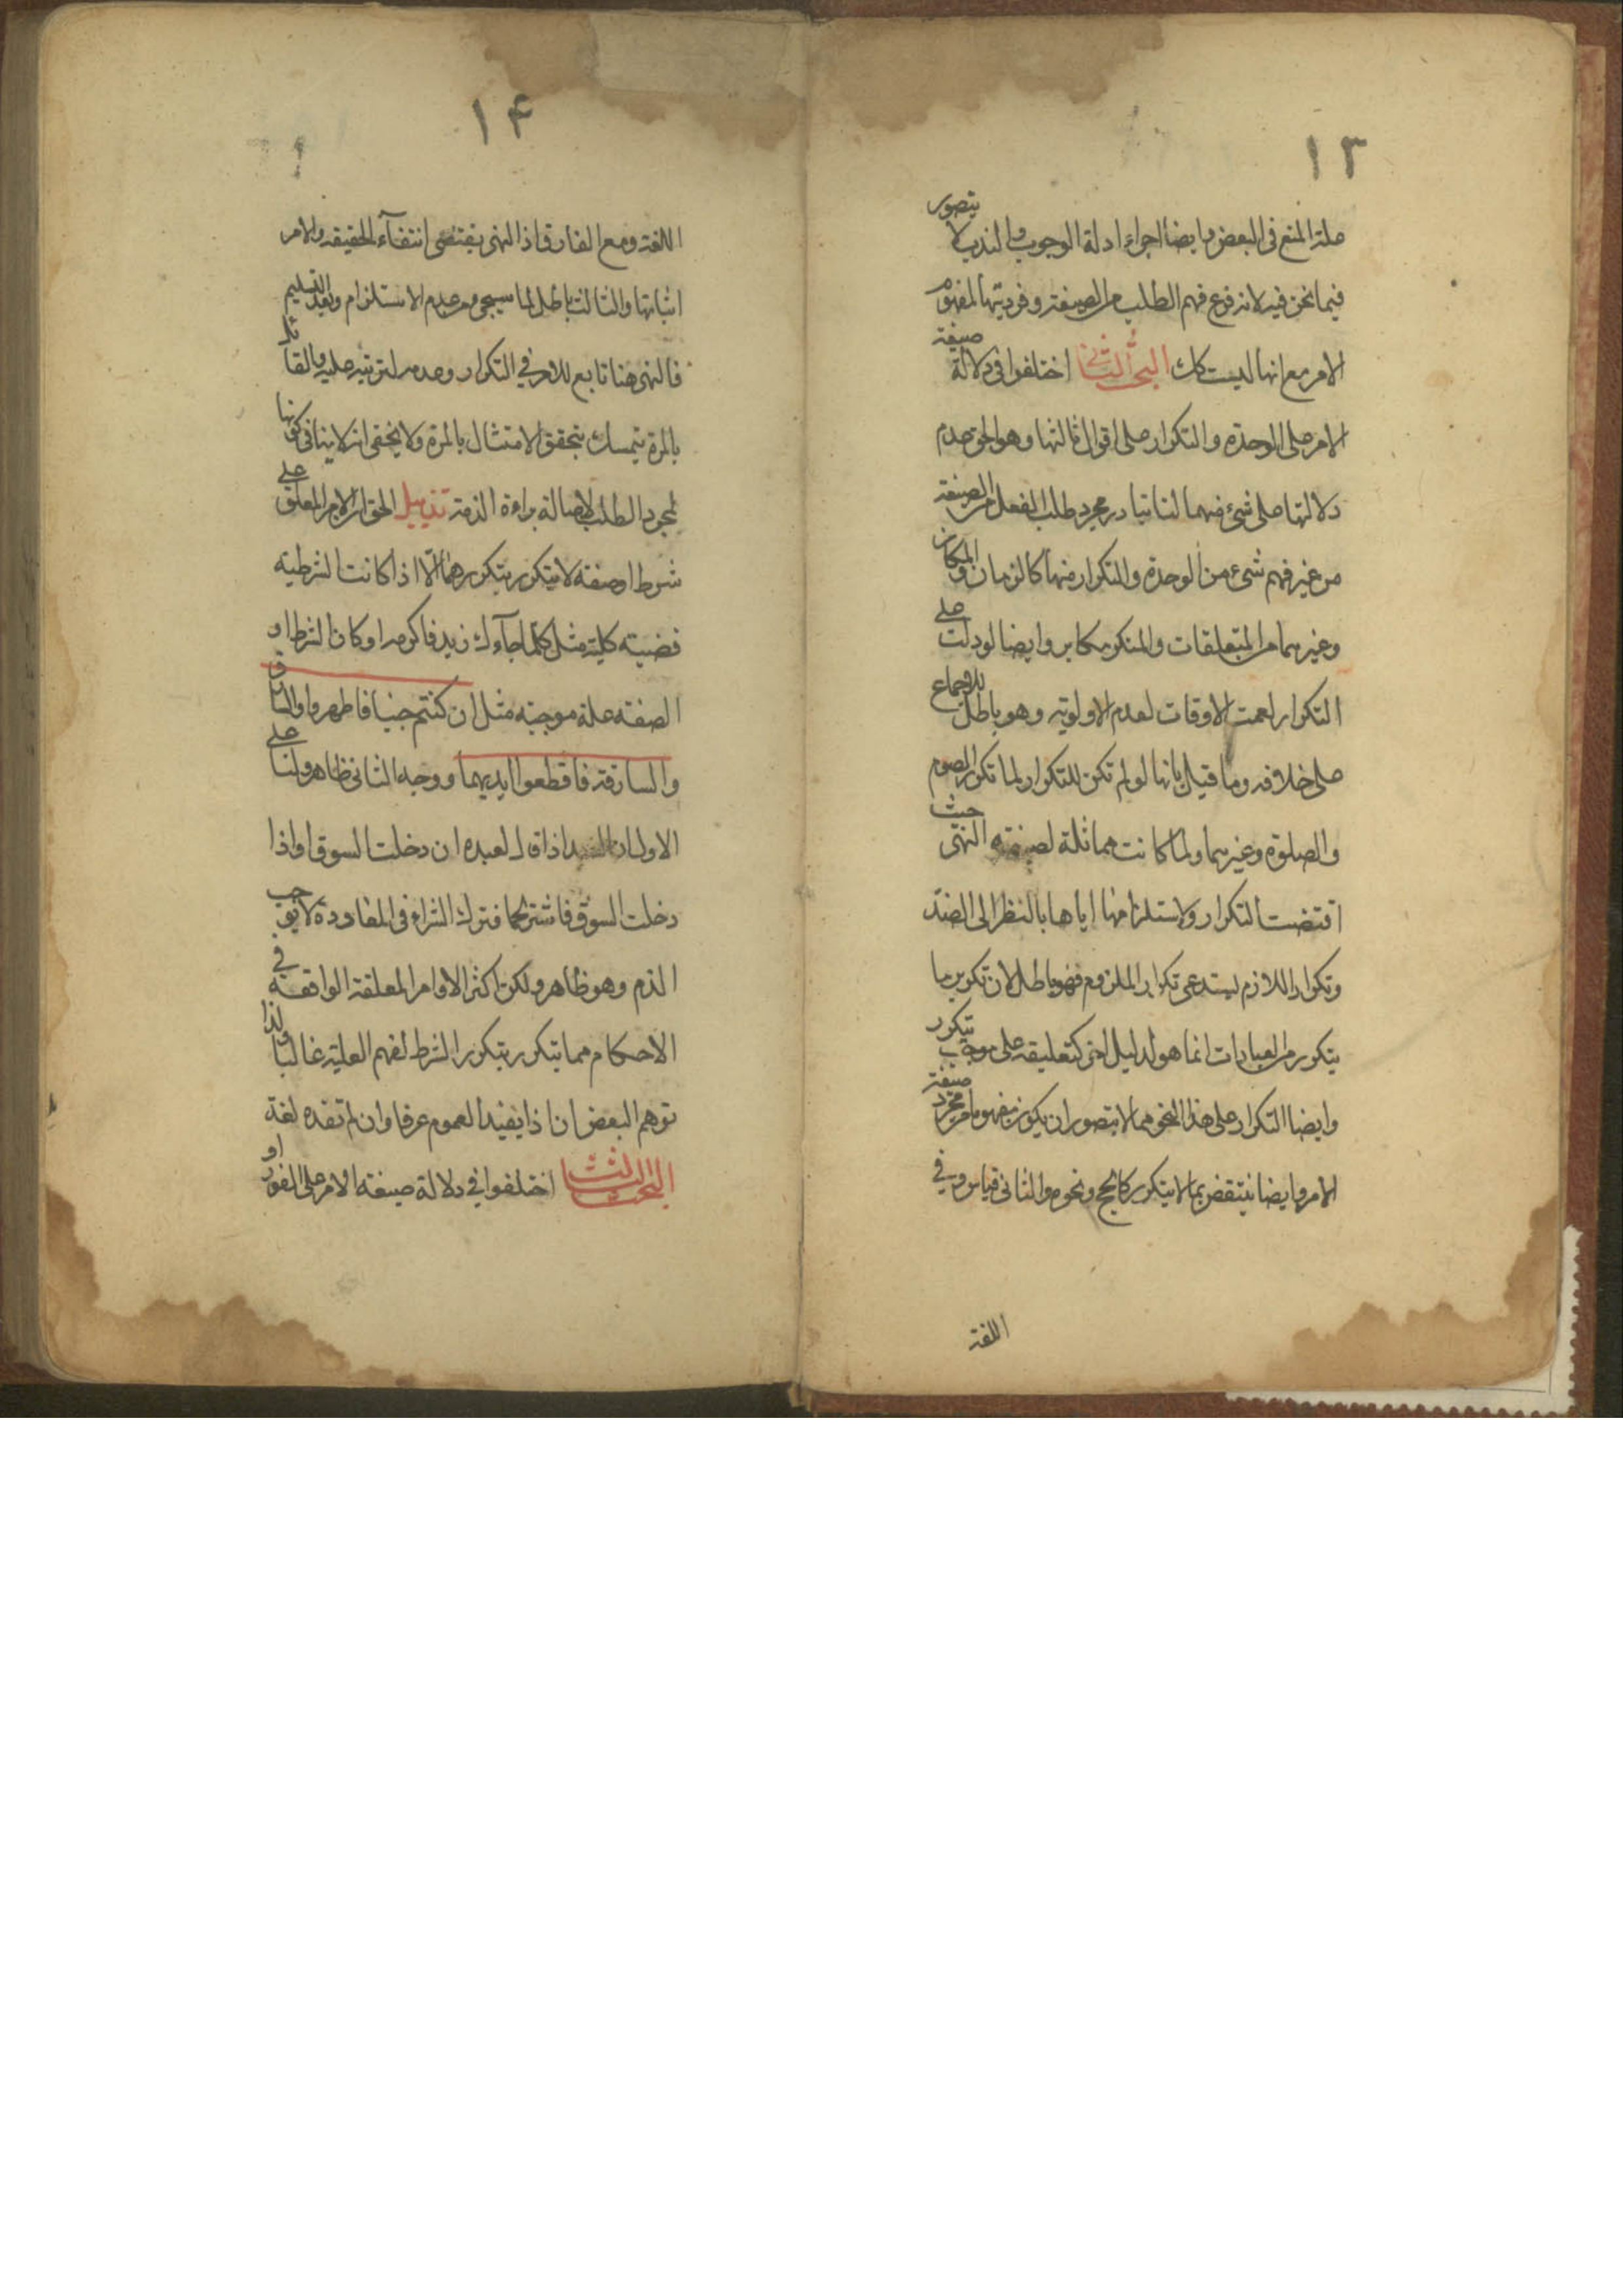 ١٣
علة المنع في البعض وايضا اجراء ادلة الوجوب والندب لا يتصور
فيما نحن فيه لانه فرع فهم الطلب من الصيغة وفرديتها لمفهوم
الامر مع انها ليست كك البحث الثاني اختلفوا في دلالة صيغة
الامر على الوحدة والتكرار على اقوال ثالثها وهو الحق عدم
دلالتها على شيء منهما لنا تبادر مجرد طلب الفعل من الصيغة
من غير فهم شيء من الوحدة والتكرار منها كالزمان والمكان
وغيرهما من المتعلقات والمنكر مكابر وايضا لو دلت على
التكرار لعمت الاوقات لعدم الاولوية وهو باطل للاجماع
على خلافه وما قيل بانها لو لم تكن للتكرار لما تكرر الصوم
والصلوة وغيرهما ولما كانت مماثلة لصيغة النهى حيث
اقتضت التكرار ولاستلزامها اياها بالنظر الى الضد
وتكرار اللازم يستدعى تكرار الملزوم فهو باطل لان تكرير ما
يتكرر من العبادات انما هو لدليل اخر كتعليقه على موجب يتكرر
وايضا التكرار على هذا النحو مما لا يتصور ان يكون مفهوما من مجرد صيغة
الامر وايضا ينتقض بما لا يتكرر كالحج ونحوه والثاني قياس في
اللغة
١۴
اللغة ومع الفارق اذ النهى يقتضى انتفاء الحقيقة والامر
اثباتها والثالث باطل لما سيجىء من عدم الاستلزام وبعد التسليم
فالنهى هنا تابع للامر في التكرار وعدمه لترتبه عليه والقائل
بالمرة يتمسك بتحقق الامتثال بالمرة ولا يخفى انه لا ينافى كونها
لمجرد الطلب لاصالة براءة الذمة تذييل الحق ان الامر المعلق على
شرط او صفة لا يتكرر بتكررهما الا اذا كانت الشرطية
قضية كلية مثل كلما جاءك زيد فاكرمه او كان الشرط او
الصفة علة موجبة مثل ان كنتم جنبا فاطهروا والسارق
والسارقة فاقطعوا ايديهما ووجه الثاني ظاهر ولنا على
الاول ان السيد اذا قال لعبده ان دخلت السوق او اذا
دخلت السوق فاشتر لحما فترك الشراء في المعاودة لا يوجب
الذم وهو ظاهر ولكن اكثر الاوامر المعلقة الواقعة في
الاحكام مما يتكرر بتكرر الشرط لفهم العلية غالبا ولذا
توهم البعض ان اذا يفيد العموم عرفا وان لم تفده لغة
البحث الثالث اختلفوا في دلالة صيغة الامر على الفور او